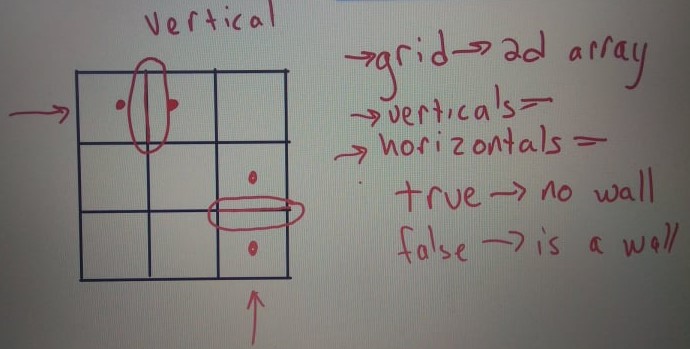 vertical
→grid→ 2d array
→verticals=
→ horizontals=
true → no wall
false → is a wall